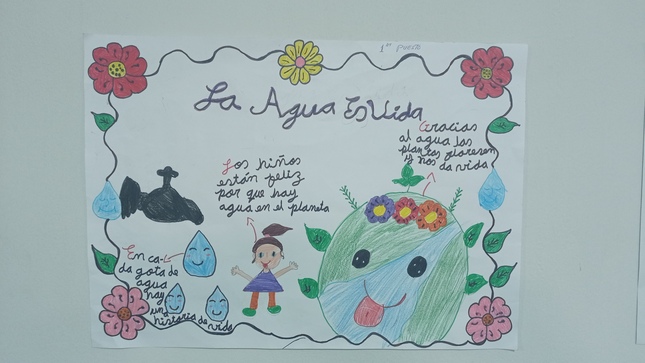 1er Puesto
La Agua Es Vida
Gracias
al agua las
plantas floresen
y nos da vida
Los niños
están feliz
por que hay
agua en el planeta
En ca-
da gota de
agua
hay
un
historia de vida